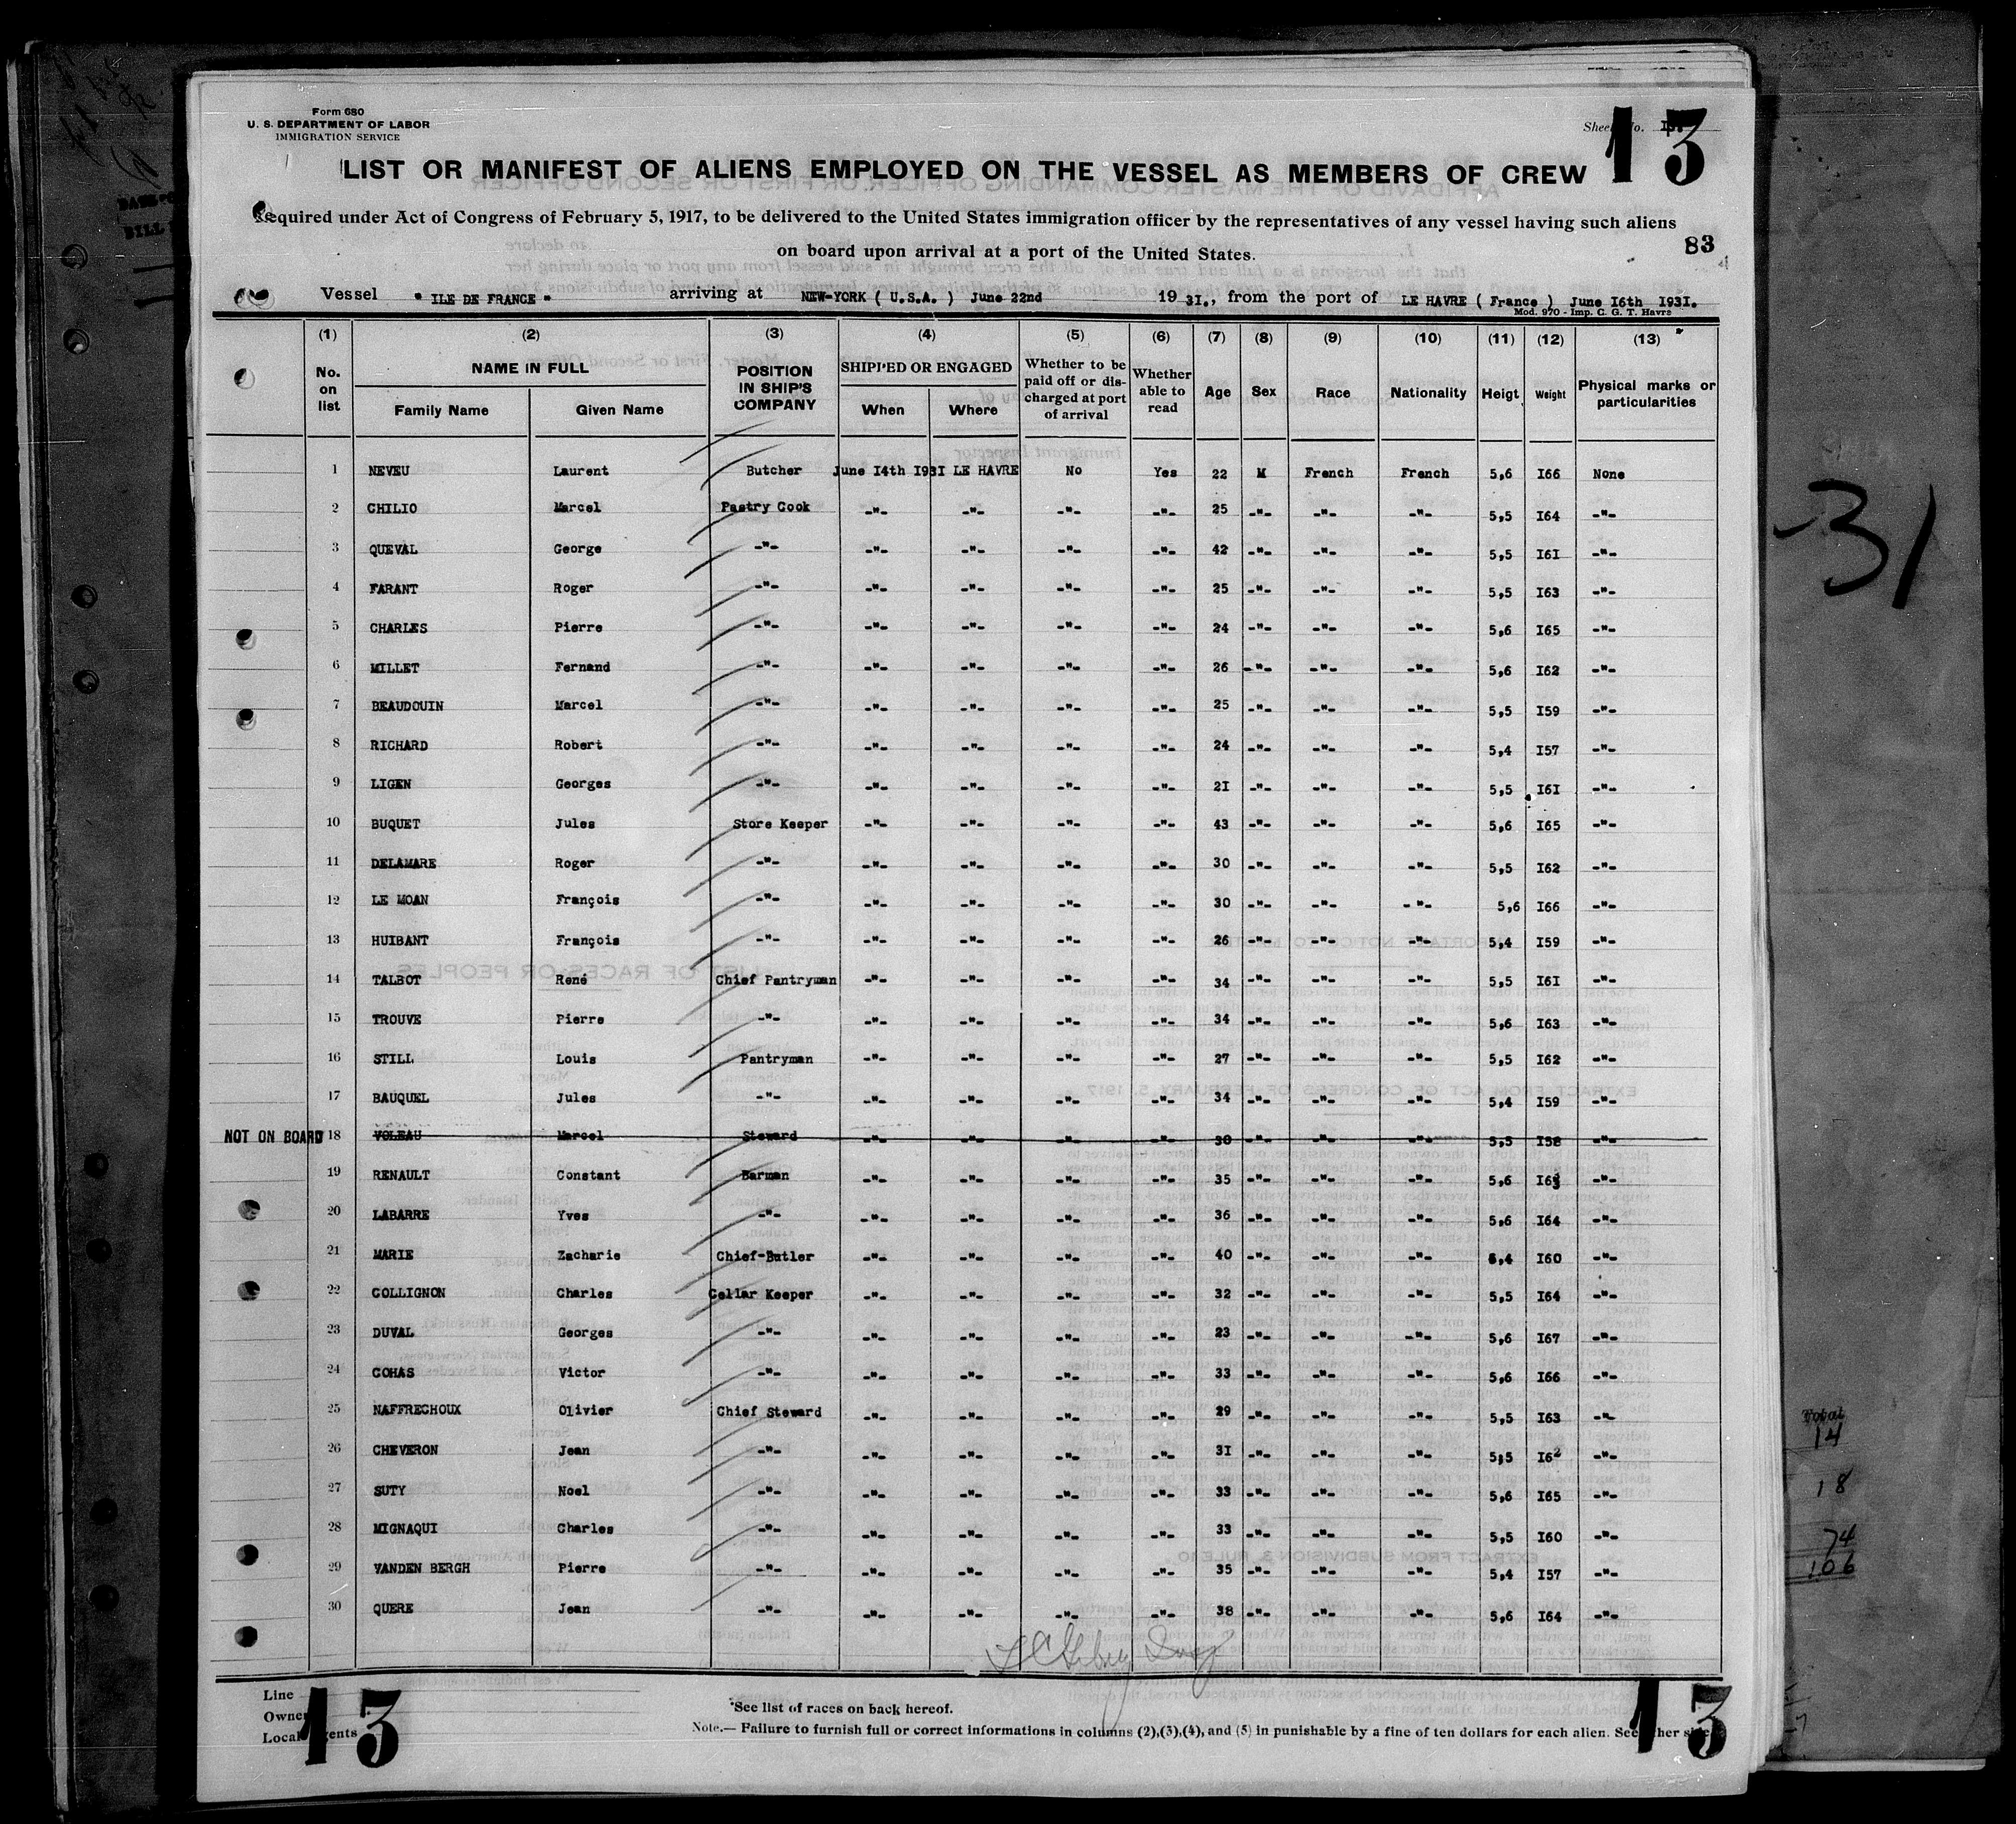 Form 680
U. S. DEPARTMENT OF LABOR
IMMIGRATION SERVICE
Sheet No.
13
LIST OR MANIFEST OF ALIENS EMPLOYED ON THE VESSEL AS MEMBERS OF CREW
Required under Act of Congress of February 5, 1917, to be delivered to the United States immigration officer by the representatives of any vessel having such aliens
on board upon arrival at a port of the United States.
83
Vessel " ILE DE FRANCE " arriving at NEW-YORK ( U.S.A. ) June 22nd 19 3I., from the port of LE HAVRE ( France ) June I6th I93I.
Mod. 970 - Imp. C. G. T. Havre
(1) (2) (3) (4) (5) (6) (7) (8) (9) (10) (11) (12) (13)
No. on list NAME IN FULL Family Name Given Name POSITION IN SHIP'S COMPANY SHIPPED OR ENGAGED When Where Whether to be paid off or discharged at port of arrival Whether able to read Age Sex Race Nationality Heigt Weight Physical marks or particularities
1 NEVEU Laurent Butcher June I4th I93I LE HAVRE No Yes 22 M French French 5,6 I66 None
2 CHILIO Marcel Pastry Cook -"- -"- -"- -"- 25 -"- -"- -"- 5,5 I64 -"-
3 QUEVAL George -"- -"- -"- -"- -"- 42 -"- -"- -"- 5,5 I6I -"-
4 FARANT Roger -"- -"- -"- -"- -"- 25 -"- -"- -"- 5,5 I63 -"-
5 CHARLES Pierre -"- -"- -"- -"- -"- 24 -"- -"- -"- 5,6 I65 -"-
6 MILLET Fernand -"- -"- -"- -"- -"- 26 -"- -"- -"- 5,6 I62 -"-
7 BEAUDOUIN Marcel -"- -"- -"- -"- -"- 25 -"- -"- -"- 5,5 I59 -"-
8 RICHARD Robert -"- -"- -"- -"- -"- 24 -"- -"- -"- 5,4 I57 -"-
9 LIGEN Georges -"- -"- -"- -"- -"- 2I -"- -"- -"- 5,5 I6I -"-
10 BUQUET Jules Store Keeper -"- -"- -"- -"- 43 -"- -"- -"- 5,6 I65 -"-
11 DELAMARE Roger -"- -"- -"- -"- -"- 30 -"- -"- -"- 5,5 I62 -"-
12 LE MOAN François -"- -"- -"- -"- -"- 30 -"- -"- -"- 5,6 I66 -"-
13 HUIBANT François -"- -"- -"- -"- -"- 26 -"- -"- -"- 5,4 I59 -"-
14 TALBOT René Chief Pantryman -"- -"- -"- -"- 34 -"- -"- -"- 5,5 I6I -"-
15 TROUVE Pierre -"- -"- -"- -"- -"- 34 -"- -"- -"- 5,6 I63 -"-
16 STILL Louis Pantryman -"- -"- -"- -"- 27 -"- -"- -"- 5,5 I62 -"-
17 BAUQUEL Jules -"- -"- -"- -"- -"- 34 -"- -"- -"- 5,4 I59 -"-
NOT ON BOARD 18 VOLEAU Marcel Steward -"- -"- -"- -"- 30 -"- -"- -"- 5,5 I58 -"-
19 RENAULT Constant Barman -"- -"- -"- -"- 35 -"- -"- -"- 5,6 I63 -"-
20 LABARRE Yves -"- -"- -"- -"- -"- 36 -"- -"- -"- 5,6 I64 -"-
21 MARIE Zacharie Chief-Butler -"- -"- -"- -"- 40 -"- -"- -"- 5,4 I60 -"-
22 COLLIGNON Charles Cellar Keeper -"- -"- -"- -"- 32 -"- -"- -"- 5,5 I64 -"-
23 DUVAL Georges -"- -"- -"- -"- -"- 23 -"- -"- -"- 5,6 I67 -"-
24 COHAS Victor -"- -"- -"- -"- -"- 33 -"- -"- -"- 5,6 I66 -"-
25 NAFFRECHOUX Olivier Chief Steward -"- -"- -"- -"- 29 -"- -"- -"- 5,5 I63 -"-
26 CHEVERON Jean -"- -"- -"- -"- -"- 3I -"- -"- -"- 5,5 I62 -"-
27 SUTY Noel -"- -"- -"- -"- -"- 33 -"- -"- -"- 5,6 I65 -"-
28 MIGNAQUI Charles -"- -"- -"- -"- -"- 33 -"- -"- -"- 5,5 I60 -"-
29 VANDEN BERGH Pierre -"- -"- -"- -"- -"- 35 -"- -"- -"- 5,4 I57 -"-
30 QUERE Jean -"- -"- -"- -"- -"- 38 -"- -"- -"- 5,6 I64 -"-
Line
Owner
Local Agents
13
*See list of races on back hereof.
Note.— Failure to furnish full or correct informations in columns (2),(3),(4), and (5) in punishable by a fine of ten dollars for each alien. See other side
13
-31
Total
14
18
74
106